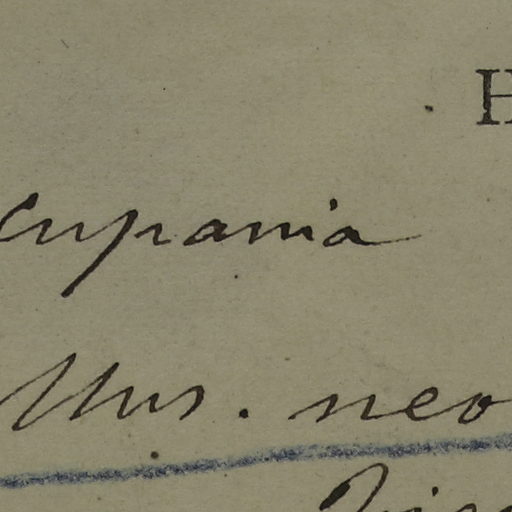 H
Cupania
Mus. neo